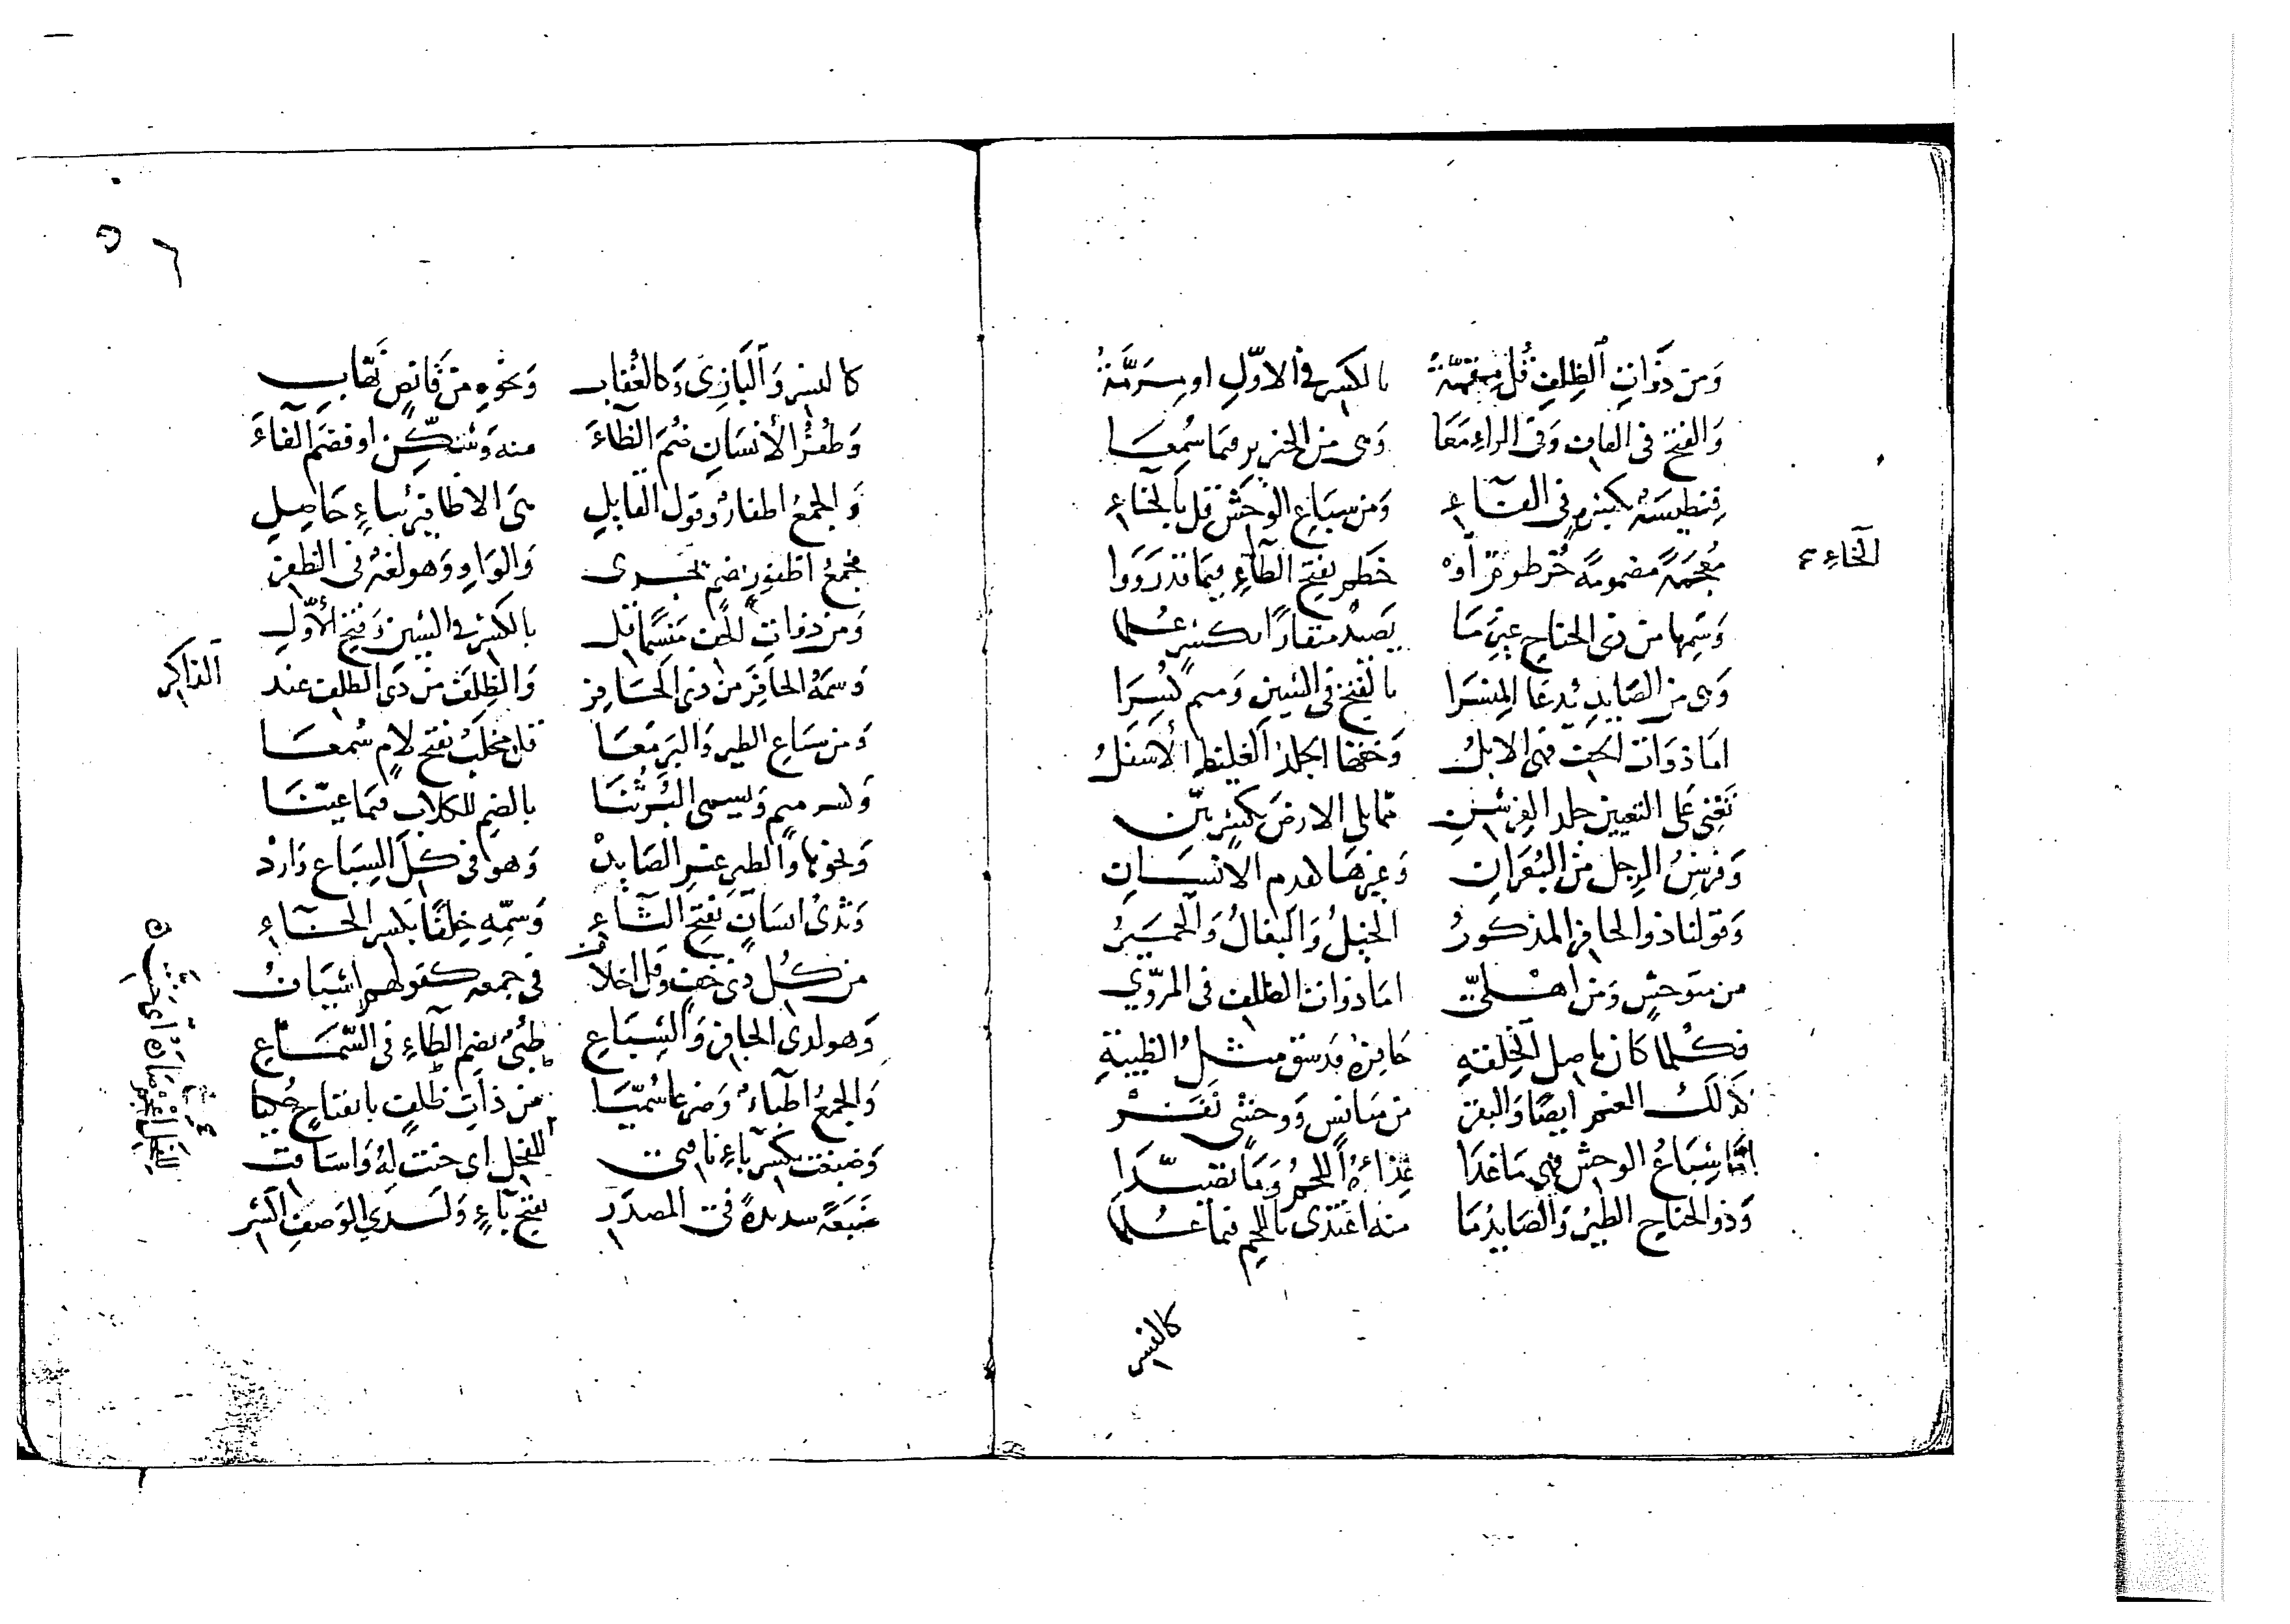 وَمن ذَوَاتِ الظِلفِ قُل مِقَمَّهْ بالكسر فى الاوّلِ او مِرَمَّهْ
وَالفتح فى القاف وَفى الراءِ مَعَا وَهى من الخنزير فيمَا سُمِعَا
فِنطِيسَةٌ بكسرٍ فى الفَاءِ وَمن سِبَاعِ الوَحْشِ قل بالخَاءِ
مُعجَمَةً مضمومَةً خُرطومٌ أوْ خَطم بفتح الطاءِ فيمَا قد رَوَوا
الخاءِ
وَسَمِّها من ذى الجناح غير مَا يَصِيدُ منقارًا بكسرٍ عُلما
وَهى من الصَايدِ يُدعَا المِنسَرَا بالفتح فى السين وَميم كُسِرَا
امَا ذوَات الخف فهى الابلُ وَخفها الجلدُ الغليظ الأسفلُ
نَعْنِى عَلى التعيين جلد الفِرْسِنِ مما يلى الارضَ بكسرين
وَفِرسِنُ الرِجل من البُعْرَانِ وَغيرهَا قدم الانسَانِ
وَقولنا ذو الحافر المذكورُ الخيلُ وَالبغالُ وَالحَمِيرُ
من متوحشٍ وَمن اهْلىّ امَا ذوات الظلف فى المرْوىّ
فكلما كان باصل الخِلقتهِ حَافره قد شق مثلُ الظبيةِ
كذلك الغنم ايضًا وَالبقر من مستانس وَوحشىّ نَفَرْ
امَّا سِبَاعُ الوحش فهى مَا غدَا غِذَاءهُ اللحمُ وَمَا تصَيّدَا
وَذو الجناحِ الطيرُ وَالصَايدُ مَا منه اغتذى باللحم فيما عُلما
كالنسر
كالنسر وَالبَازِى وَكالعُقاب وَنحوهِ من قَانصٍ نَصَّابِ
وَظُفُرُ الأنسَانِ ضُمَّ الظاءَ منه وَسَكِّن او فضم الفاءَ
وَالجمعُ اظفارٌ وَقول القايلِ هى الاظافير بياءٍ حَاصِلِ
فجمعُ اظفورٍ بضم يجرى وَالوَاوِ وَهو لغة فى الظفر
وَمن ذوات الخف مَنْسِمًا قل بالكسر فى السين وَفتح الأوّلِ
وَسمهُ الحَافرَ من ذى الحَافر وَالظِلفَ من ذى الظلف عند الذاكر
وَمن سِبَاع الطير وَالبَر مَعَا قل مِخلَبٌ بفتح لامٍ سُمعَا
وَكسر ميم وَيسمى البُرْثُنَا بالضم للكلاب فيمَا عيّنَا
وَنحوها وَالطير غير الصَايدْ وَهو فى كل السِبَاع وَارِدْ
وَثدىُ انسَانٍ بفتح الثَاءِ وَسمِّهِ خِلفًا بكسر الخَاءِ
من كل ذى خف وَقل اخلافُ فى جمعه كقولهم اسْيَافُ
وَهو لدى الحافر وَالسِبَاعِ طُبْىٌ بضم الطاءِ فى السَّمَاعِ
وَالجمعُ اطباءٌ وَضرعًا سُمّيَا من ذاتِ ظلفٍ بانفتاحٍ حُكيَا
وَضبعت بكسر باءٍ ناقتى للفحل اى حنت له وَاستَاقت
ضَبَعَةً سديدةً فى المصدر بفتح باءٍ وَلَدى الوَصفِ اكسر